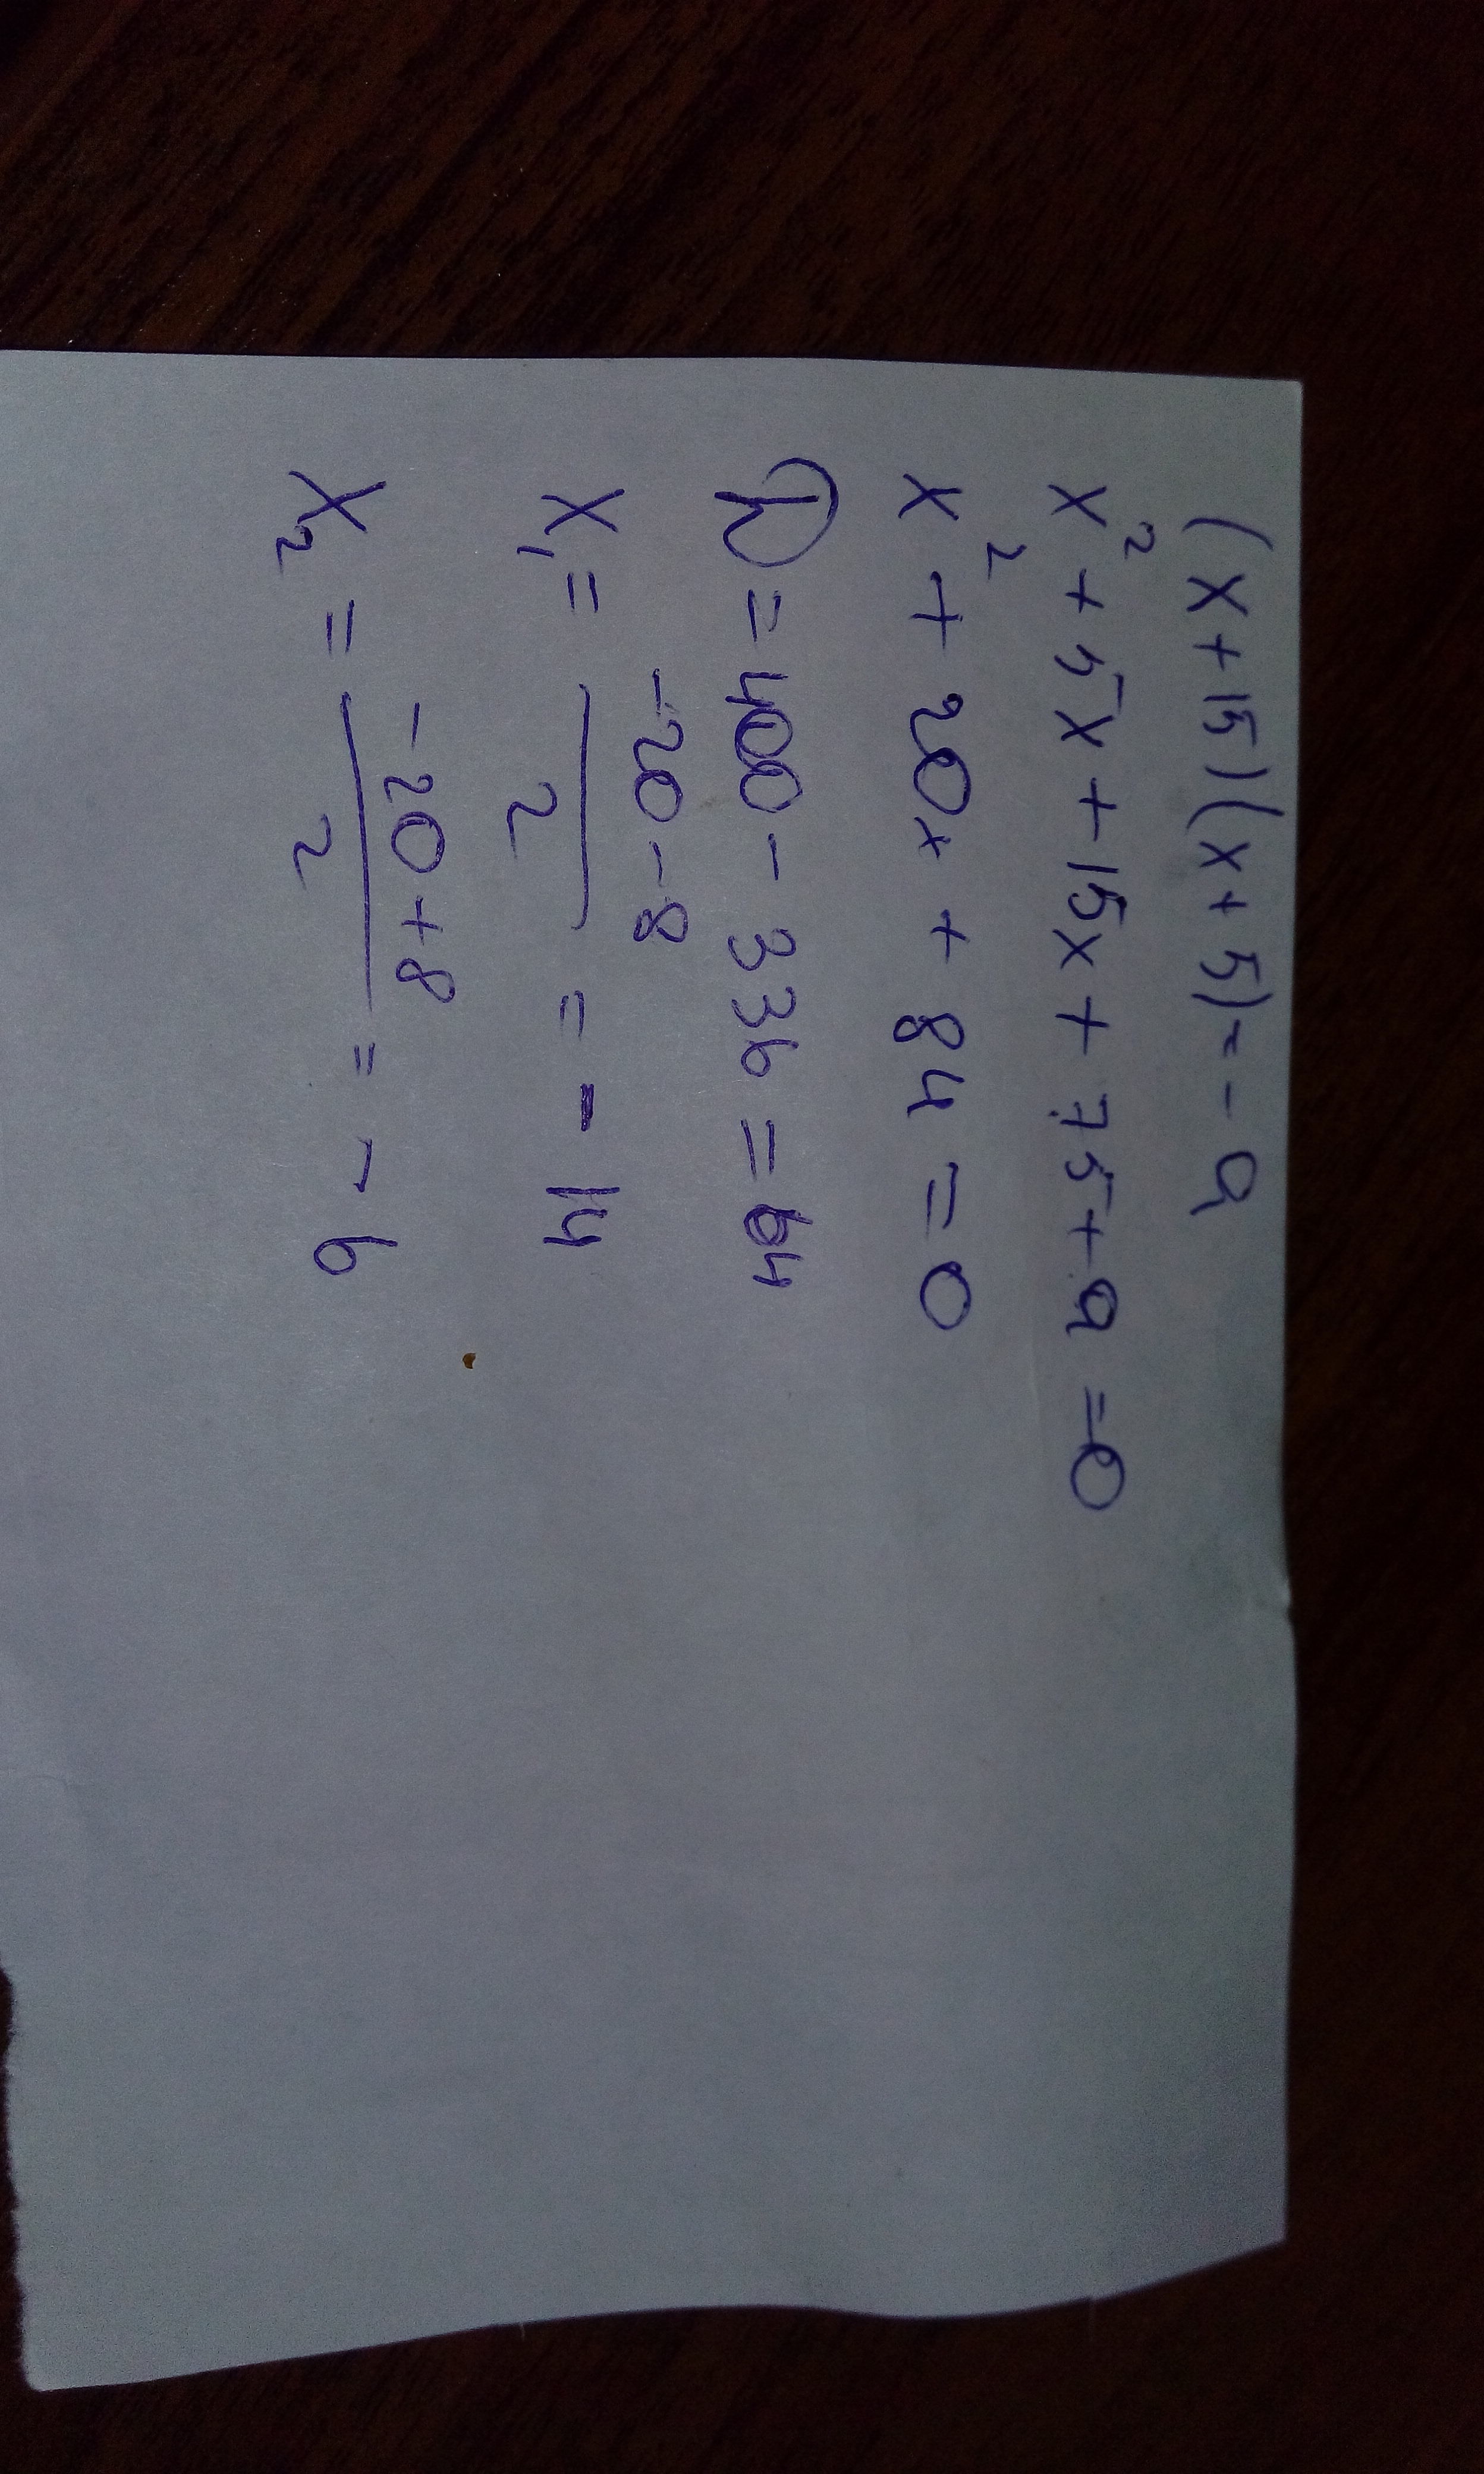 (x+15)(x+5)=-9
x²+5x+15x+75+9=0
x²+20x+84=0
D=400-336=64
x₁=(-20-8)/2=-14
x₂=(-20+8)/2=-6